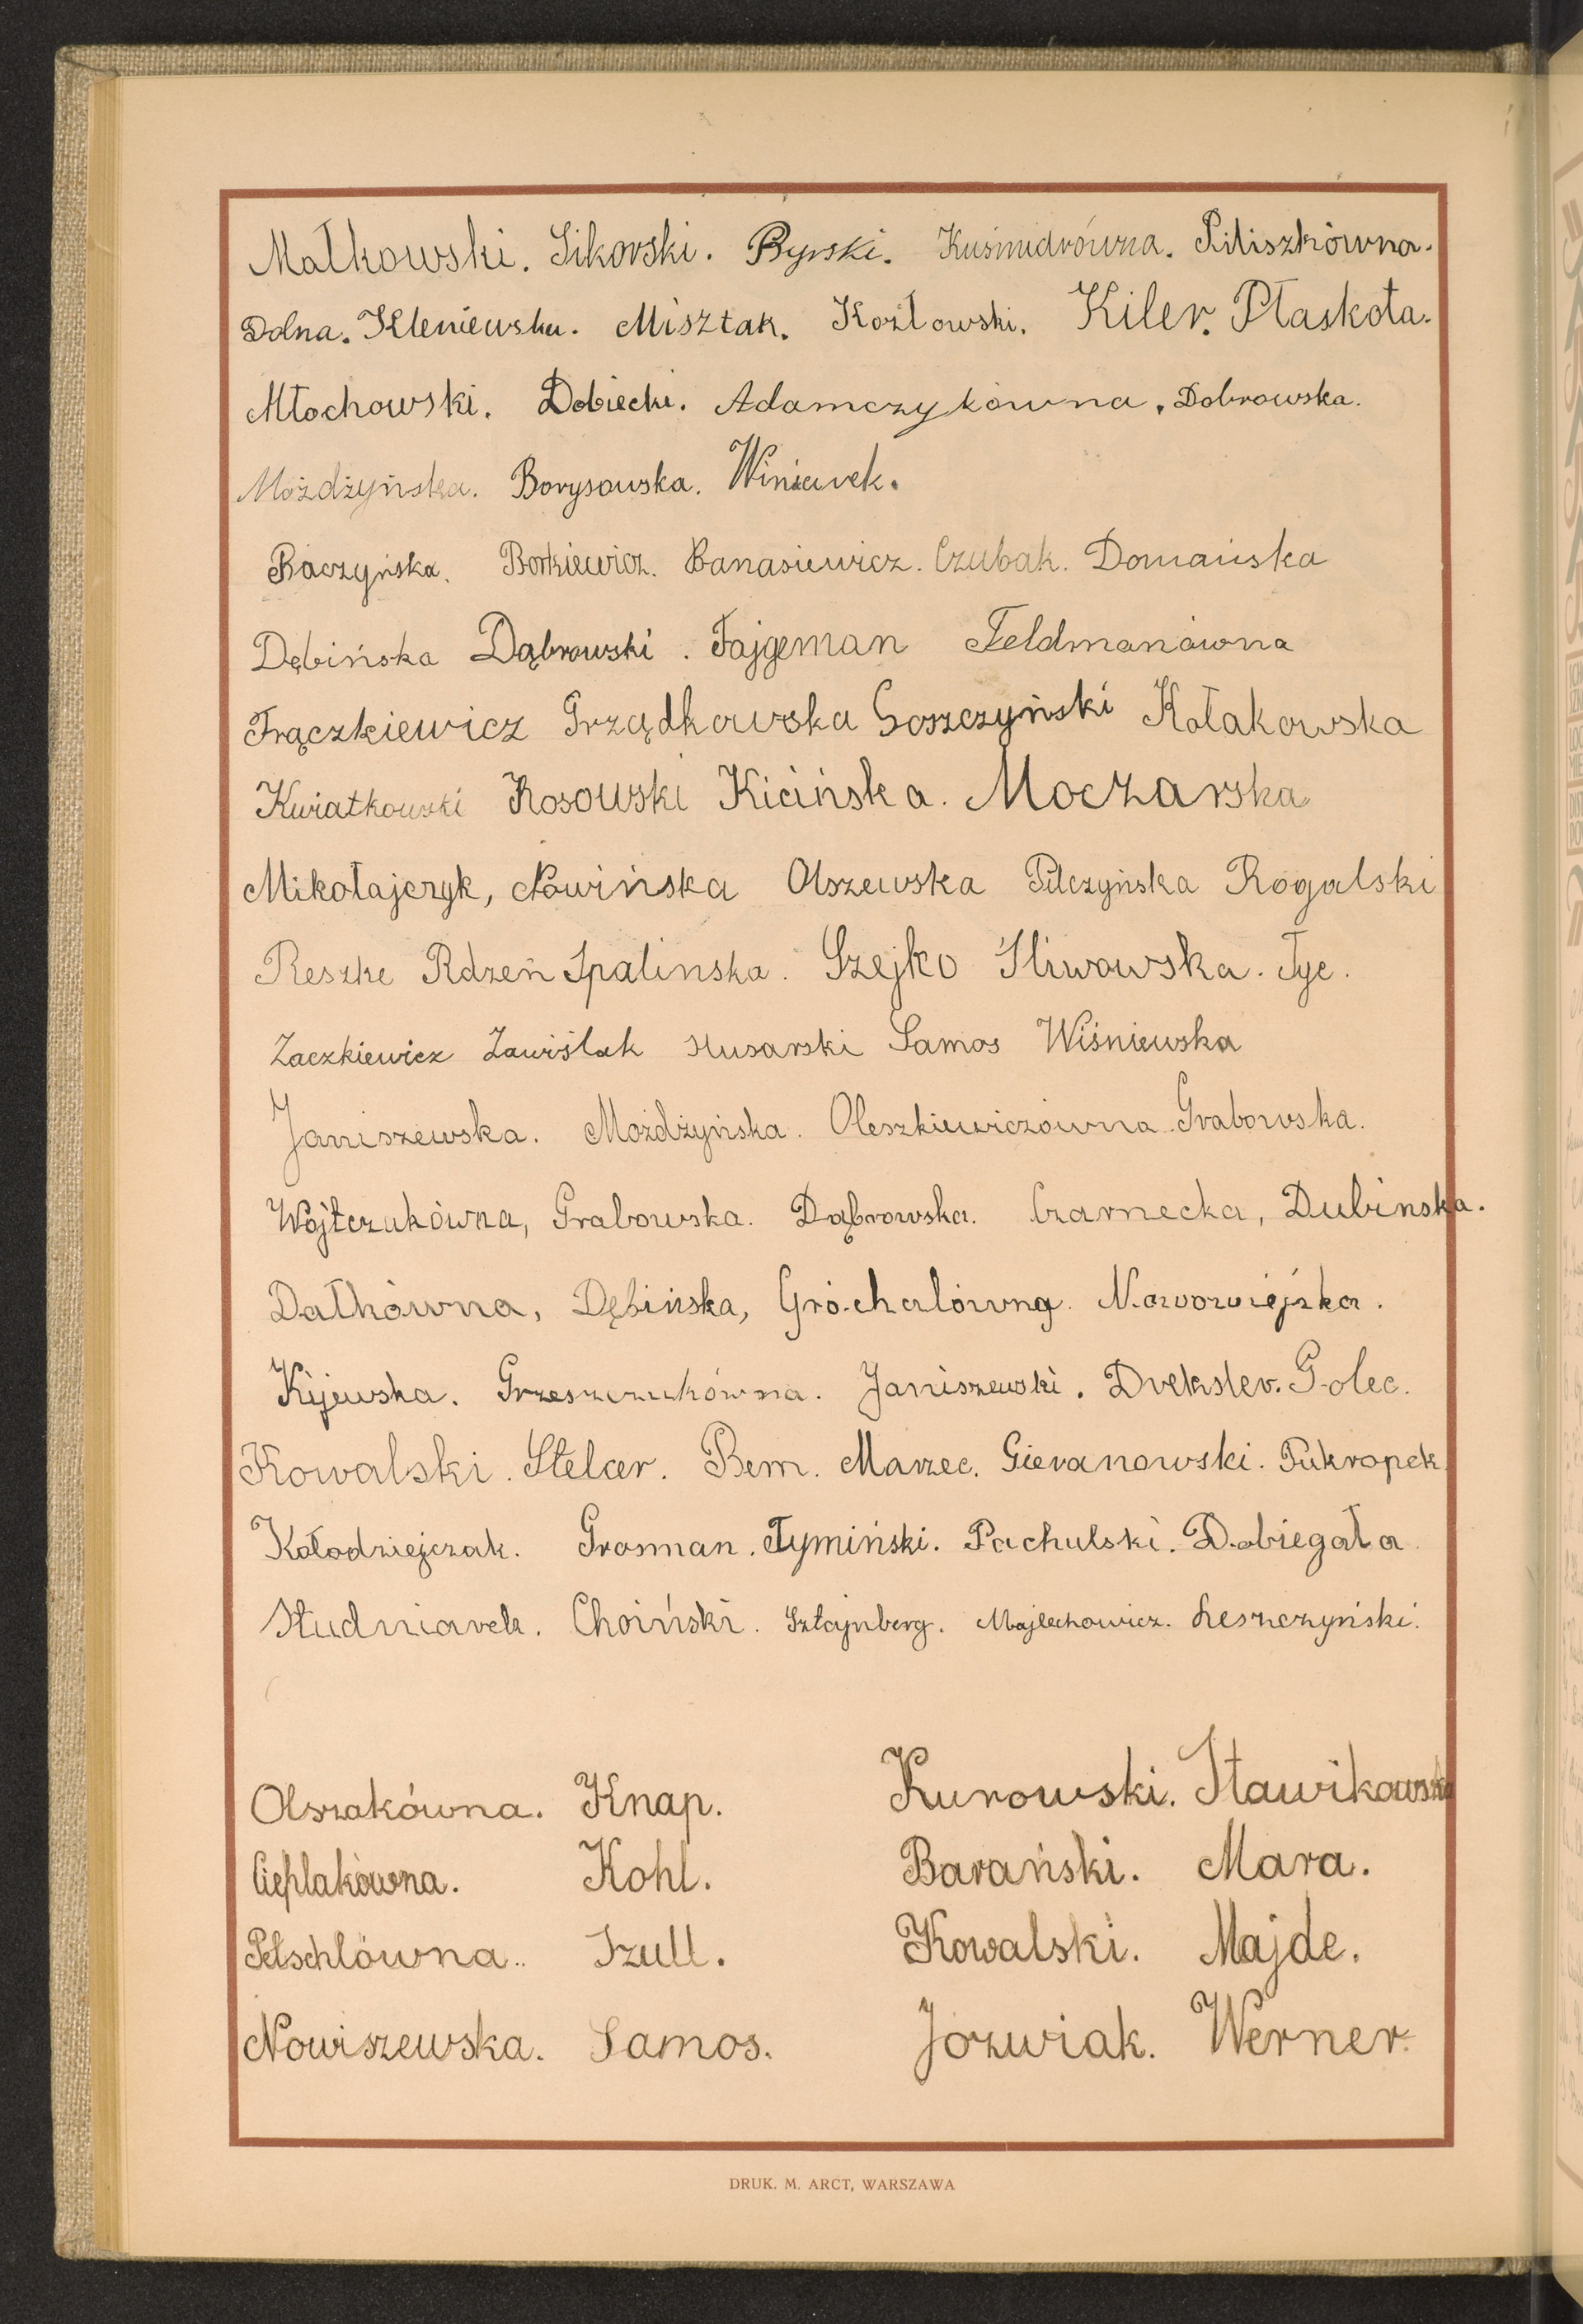 Małkowski. Sikorski. Byrski. Kuśmidrówna. Piliszkówna.
Dolna. Kleniewska. Misztak. Kozłowski. Kiler. Płaskota.
Młochowski. Dobiecki. Adamczykówna. Dobrowska.
Możdżyńska. Borysowska. Winiarek.
Baczyńska. Borkiewicz. Banasiewicz. Czubak. Domańska
Dębińska Dąbrowski. Fajgeman Feldmanówna
Frączkiewicz Grządkowska Goszczyński Kołakowska
Kwiatkowski Kosowski Kicińska. Moczarska
Mikołajczyk, Nowińska Olszewska Pilczyńska Rogalski
Reszke Rdzeń Spalinska. Szejko Śliwowska. Tyc.
Zaczkiewicz Zawiślak Husarski Samos Wiśniewska
Janiszewska. Możdżyńska. Oleszkiewiczówna Grabowska.
Wójtczukówna, Grabowska. Dąbrowska. Czarnecka, Dubinska.
Dałkówna, Dębińska, Gróchalówna. Nowowiejska.
Kijewska. Grzeszczukówna. Janiszewski. Dreksler. Golec.
Kowalski. Stelcer. Bem. Marzec. Gieranowski. Pukropek
Kołodziejczak. Grosman. Tymiński. Pachulski. Dobiegała
Studniarek. Choiński. Sztajnberg. Majlechowicz. Leszczyński.
Olszakówna. Knap. Kurowski. Sławikowska
Cieplakówna. Kohl. Barański. Mara.
Petschlówna.. Szull. Kowalski. Majde.
Nowiszewska. Samos. Jozwiak. Werner.
DRUK. M. ARCT, WARSZAWA